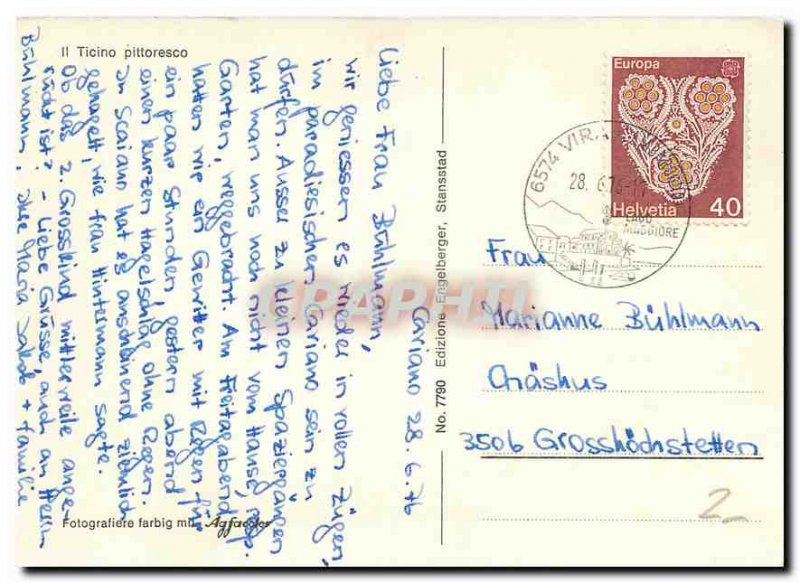 Il Ticino pittoresco
Cariano 28.6.76
Liebe Frau Bühlmann,
wir geniessen es wieder in vollen Zügen,
im paradiesischen Cariano sein zu
dürfen. Ausser zu kleinen Spaziergängen
hat man uns noch nicht vom Hause, resp.
Garten, weggebracht. Am Freitagabend
hatten wir ein Gewitter mit Regen für
ein paar Stunden, gestern abend
einen kurzen Hagelschlag ohne Regen.
In Scaiano hat es anscheinend ziemlich
gehagelt, wie Frau Hintermann sagte.
Ob das 2. Grosskind mittlerweile ange-
rückt ist? - Liebe Grüsse, auch an Herrn
Bühlmann, Ihre Maria + Familie
Fotografiere farbig mit Agfacolor
No. 7790 Edizione Engelberger, Stansstad
Europa
Helvetia 40
6574 VIRA
28.6.76
LAGO
MAGGIORE
Frau
Marianne Bühlmann
Gräshus
3506 Grosshöchstetten
2